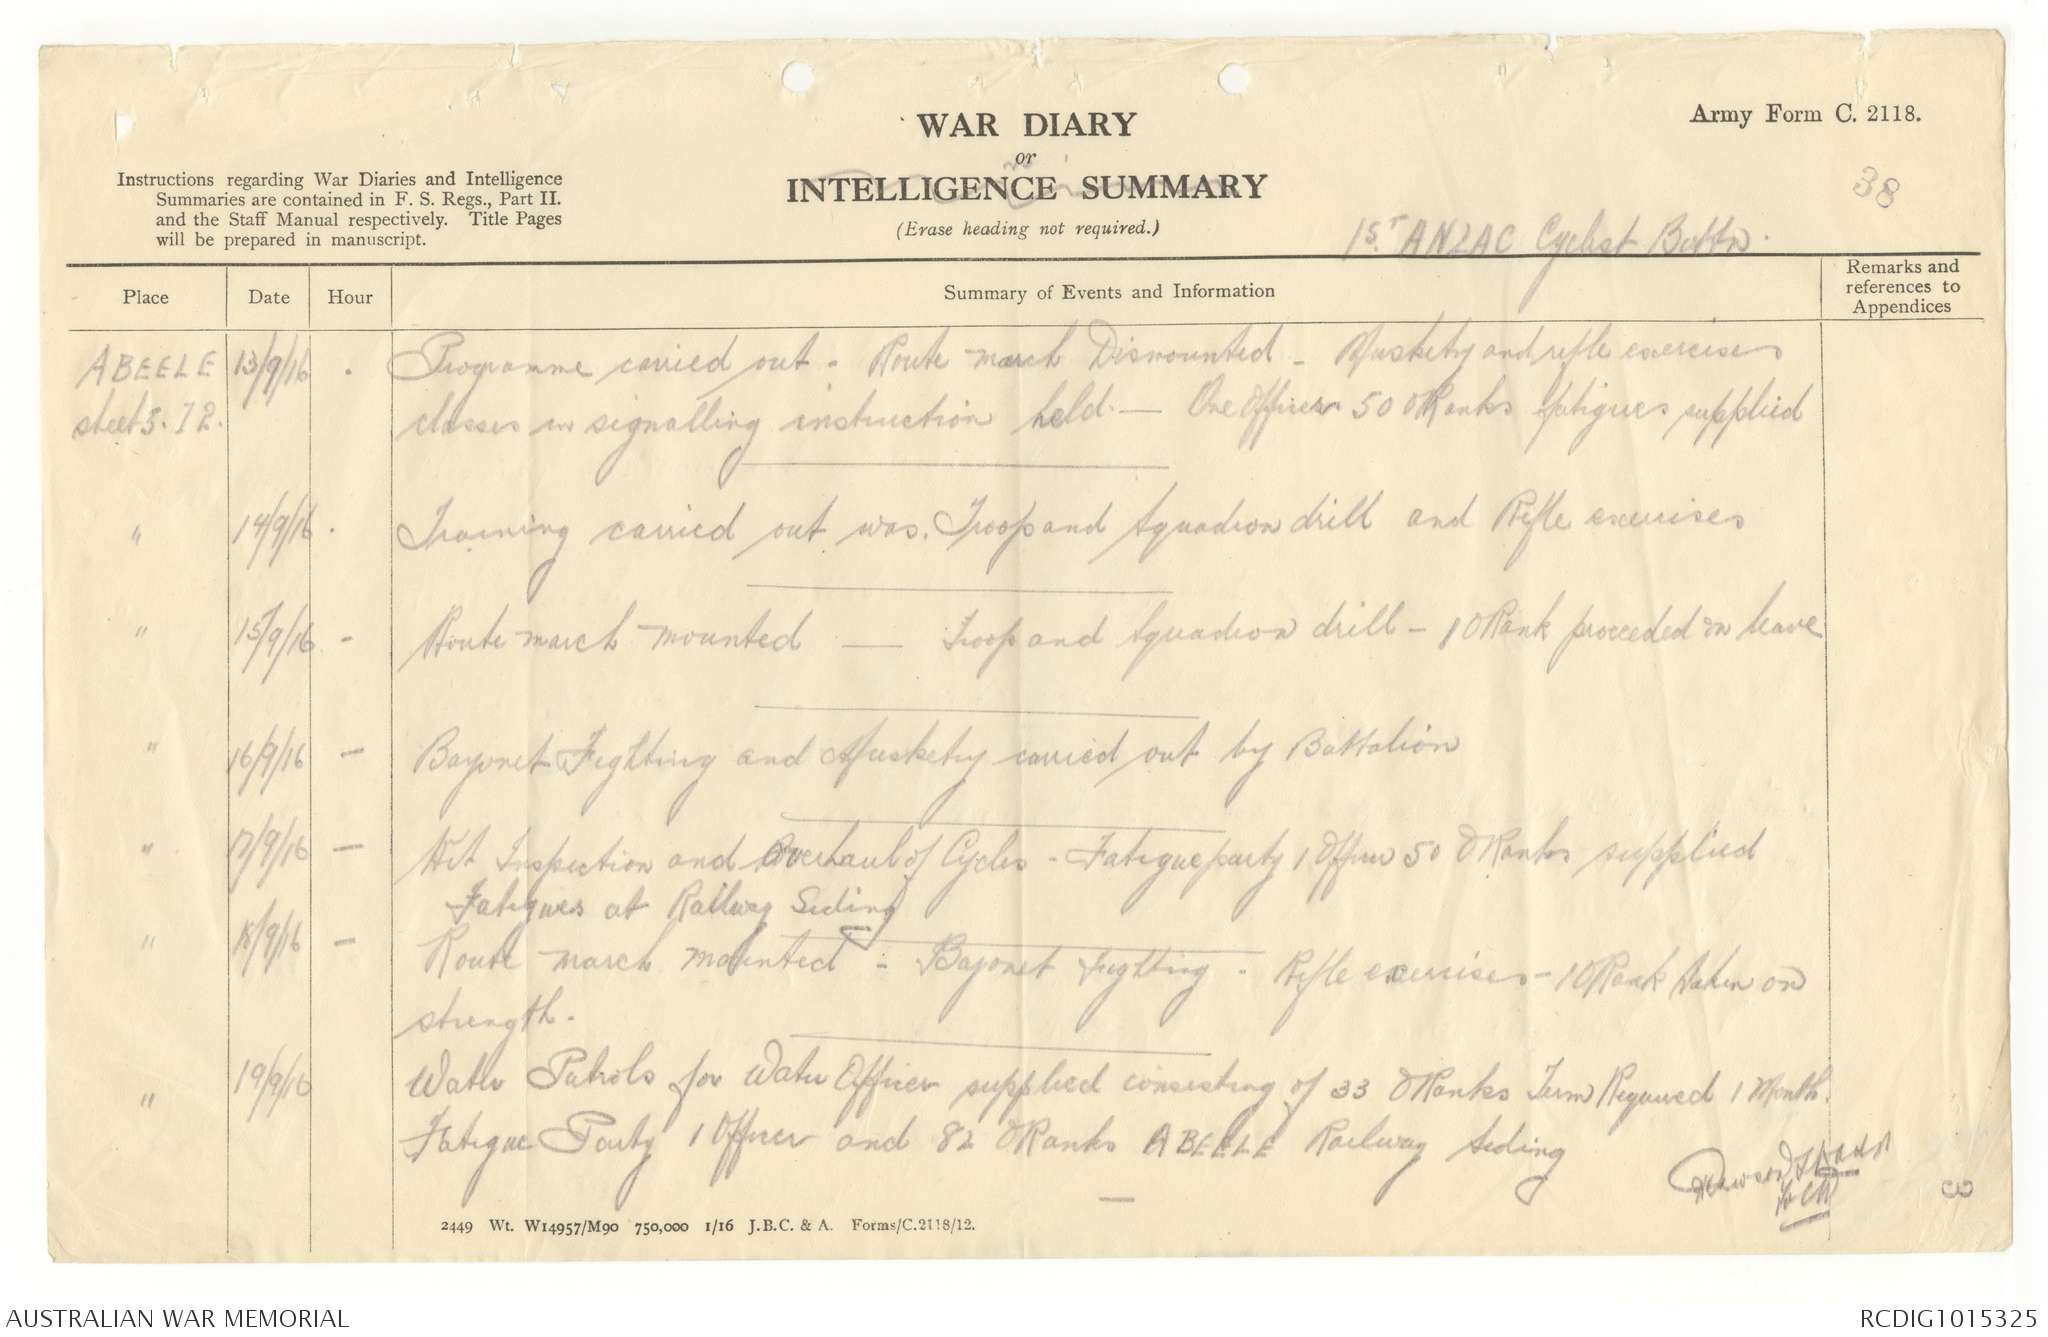 Army Form C. 2118.
WAR DIARY
or
INTELLIGENCE SUMMARY
(Erase heading not required.)
Instructions regarding War Diaries and Intelligence
Summaries are contained in F. S. Regs., Part II.
and the Staff Manual respectively. Title Pages
will be prepared in manuscript.
38
1ST ANZAC Cyclist Battn.
Place Date Hour Summary of Events and Information Remarks and references to Appendices
ABEELE 13/9/16 . Programme carried out - Route march Dismounted - Muskety and rifle exercises
sheet 5. 72. classes in signalling instruction held. — One Officer 50 ORanks fatigues supplied
" 14/9/16 . Training carried out was. Troop and Squadron drill and Rifle exercises
" 15/9/16 - Route march mounted — Troop and Squadron drill - 1 ORank proceeded on leave
" 16/9/16 - Bayonet Fighting and Muskety carried out by Battalion
" 17/9/16 - Kit Inspection and Overhaul of Cycles - Fatigue party 1 Officer 50 ORanks supplied
Fatigues at Railway Siding
" 18/9/16 - Route march mounted - Bayonet fighting - Rifle exercises - 1 ORank taken on
strength.
" 19/9/16 Water Patrols for Water Officer supplied consisting of 33 ORanks Term Required 1 Month.
Fatigue Party 1 Officer and 82 ORanks ABEELE Railway Siding
3
2449 Wt. W14957/M90 750,000 1/16 J.B.C. & A. Forms/C.2118/12.
AUSTRALIAN WAR MEMORIAL
RCDIG1015325